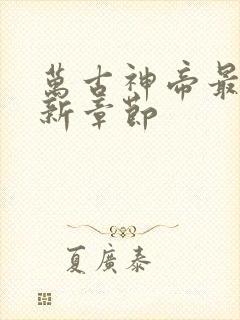 萬古神帝最
新章節
夏廣泰